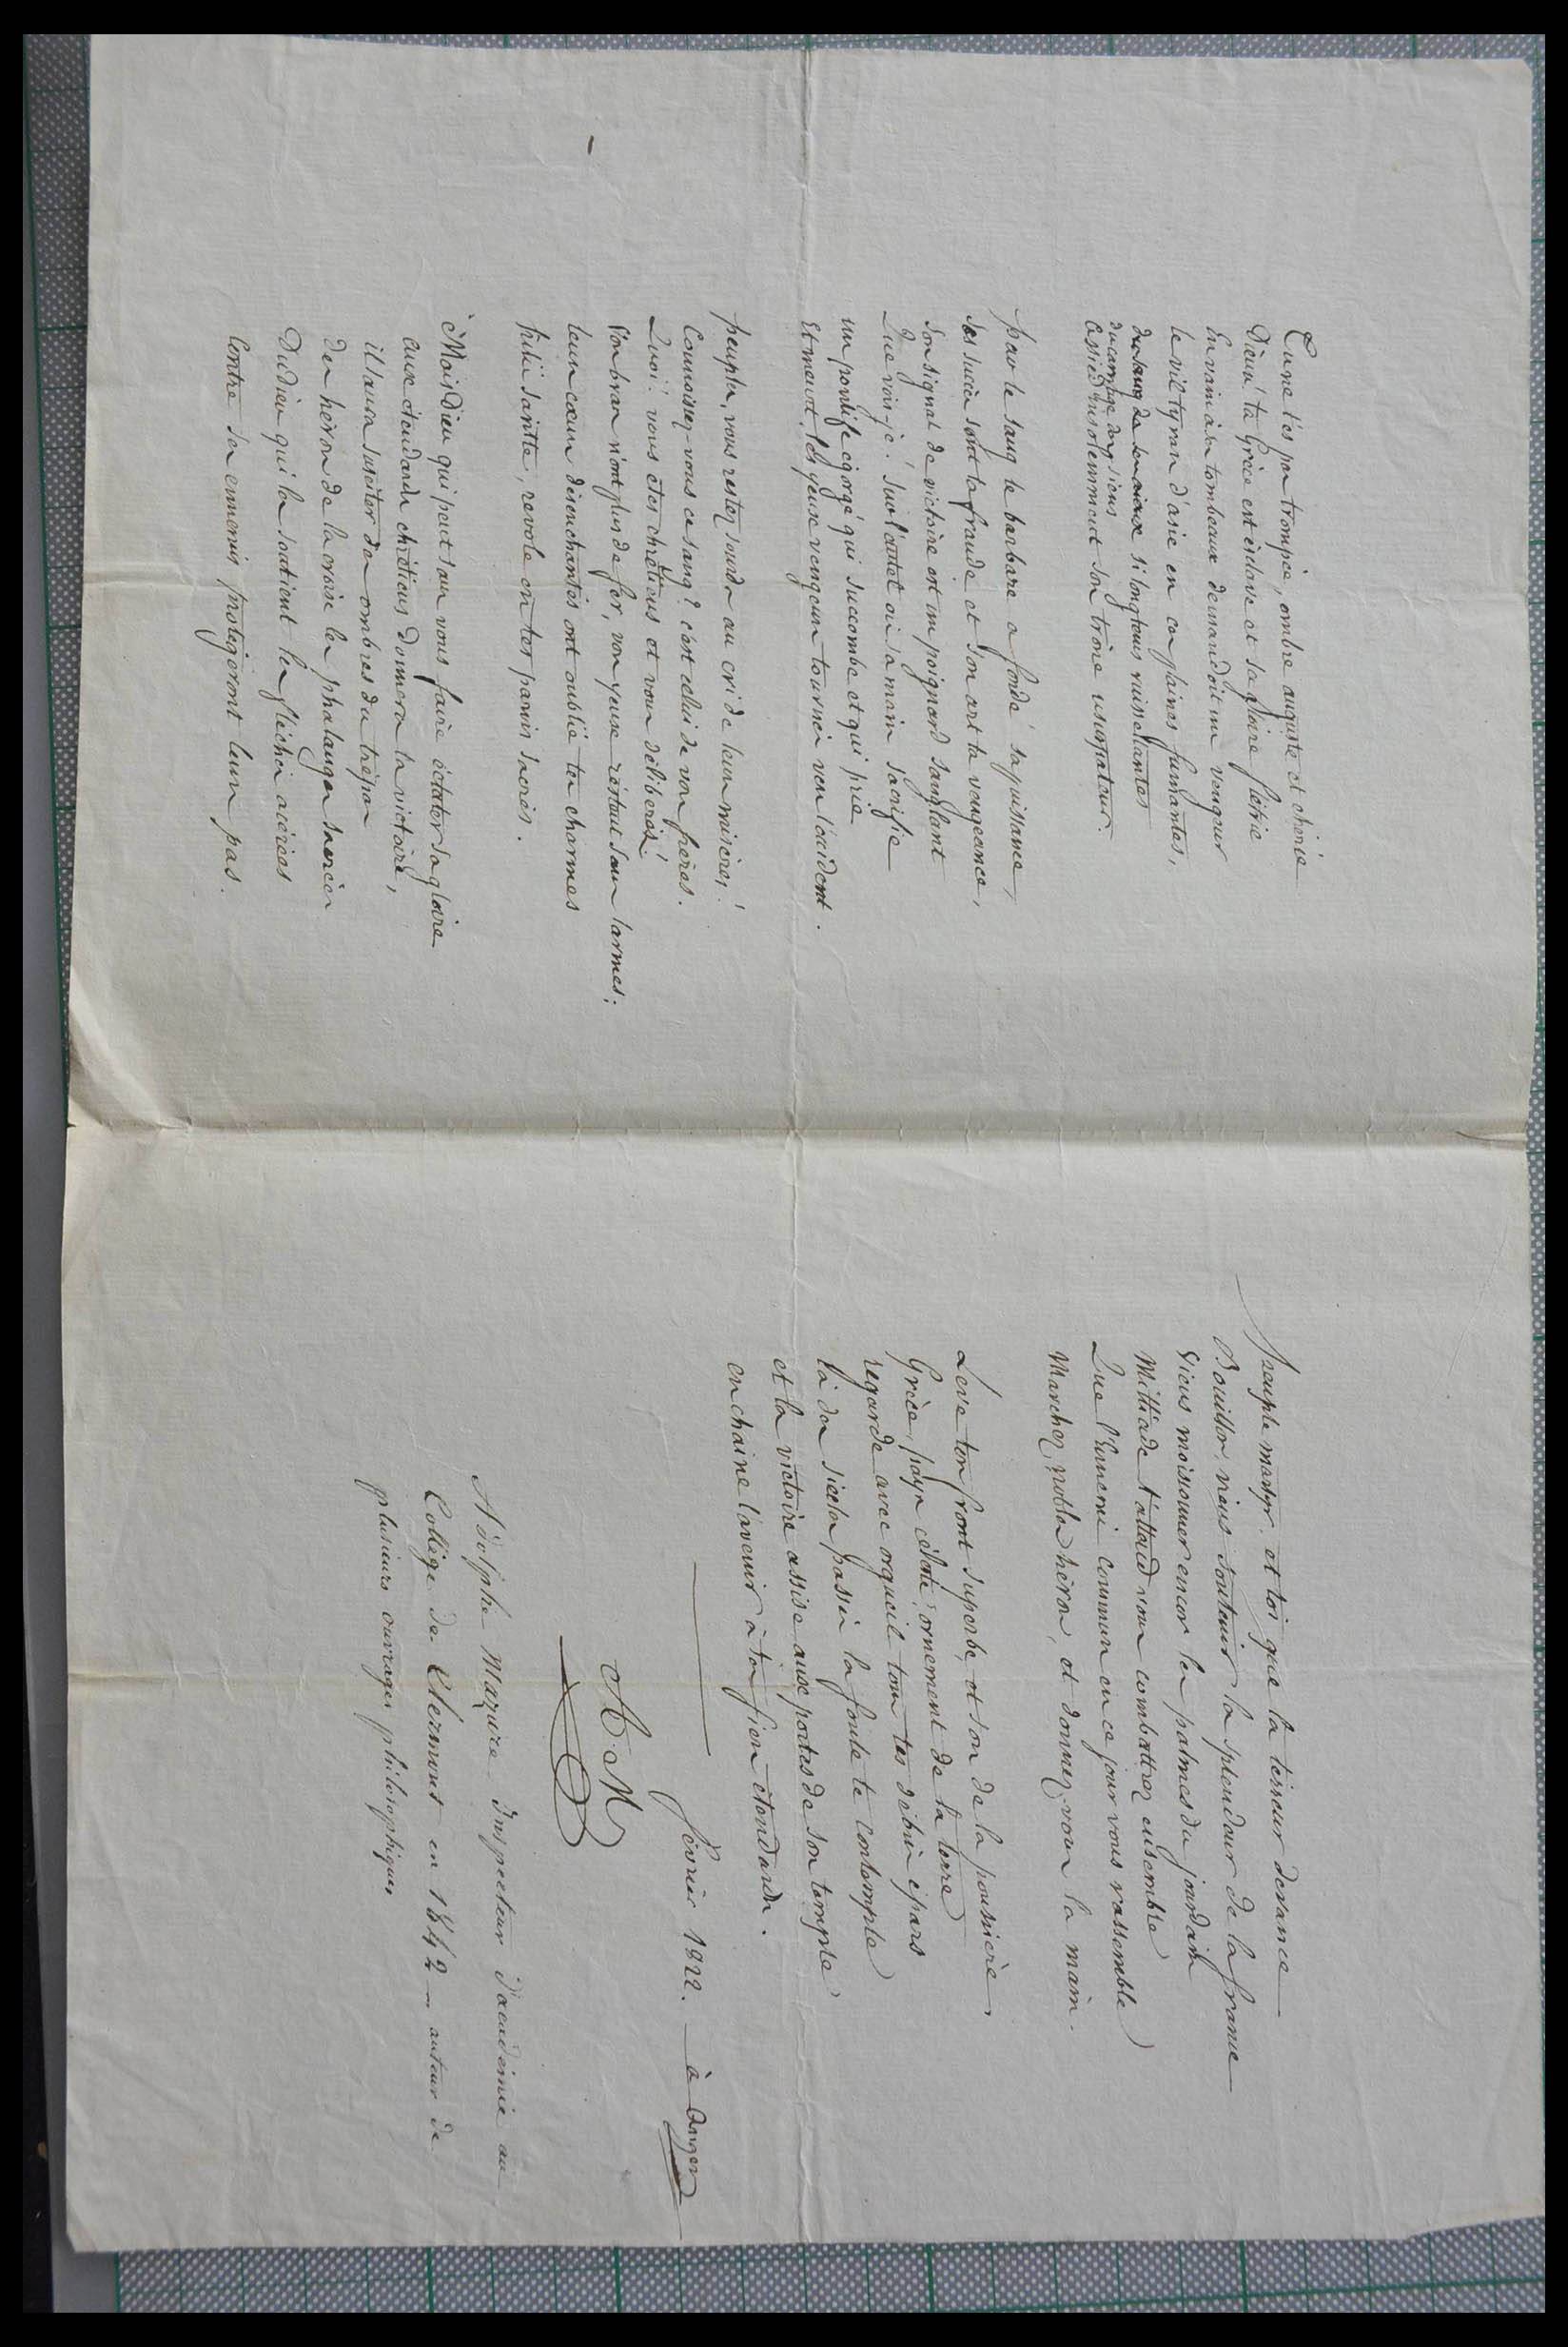 Tu ne t'es pas trompée, ombre auguste et chérie
Dieux! ta Grèce est esclave et sa gloire flétrie
En vain à ses tombeaux demandoit un vengeur
le vil tyran d'asie en ces plaines fumantes,
du sang de ses aieux si longtems ruisselantes
du carnage des siens
assied insolemment son trône usurpateur.
par le sang le barbare a fondé sa puissance,
ses succès sont la fraude et son art la vengeance,
son signal de victoire est un poignard sanglant
Que vois-je! sur l'autel où sa main sacrifie
un pontife égorgé qui succombe et qui prie
Et meurt, les yeux vengeurs tournés vers l'occident.
peuples, vous restez sourds au cri de leurs misères!
Connoissez-vous ce sang? c'est celui de vos frères.
Quoi! vous êtes chrétiens et vous délibérez!
Vos bras n'ont plus de fer, vos yeux restent sans larmes;
leurs cœurs désenchantés ont oublié tes charmes
Pitié sainte, revole en tes parvis sacrés.
Mais Dieu qui peut sans vous faire éclater sa gloire
aux étendards chrétiens donnera la victoire,
il saura susciter des ombres du trépas
Des héros de la croix les phalanges sacrées
Du dieu qui les soutient les flèches acérées
Contre ses ennemis protégeront leurs pas.
Peuple martyr, et toi que la terreur devance
Bouillon, viens soutenir la splendeur de la france
Viens moissonner encor les palmes du jourdain
Miltiade t'attend vous combattrez ensemble
Que l'Ennemi commun en ce jour vous rassemble
Marchez, nobles héros, et donnez-vous la main.
Leve ton front superbe, et sors de la poussière,
Grèce, pays céleste, ornement de la terre
regarde avec orgueil tous tes débris épars
là des siècles passés la foule te contemple
et la victoire assise aux portes de son temple
enchaine l'avenir à tes fiers étendards.
février 1822. — à Angers
A. M
Adolphe Mazure inspecteur d'académie au
Collège de Clermont en 1842 — auteur de
plusieurs ouvrages philosophiques